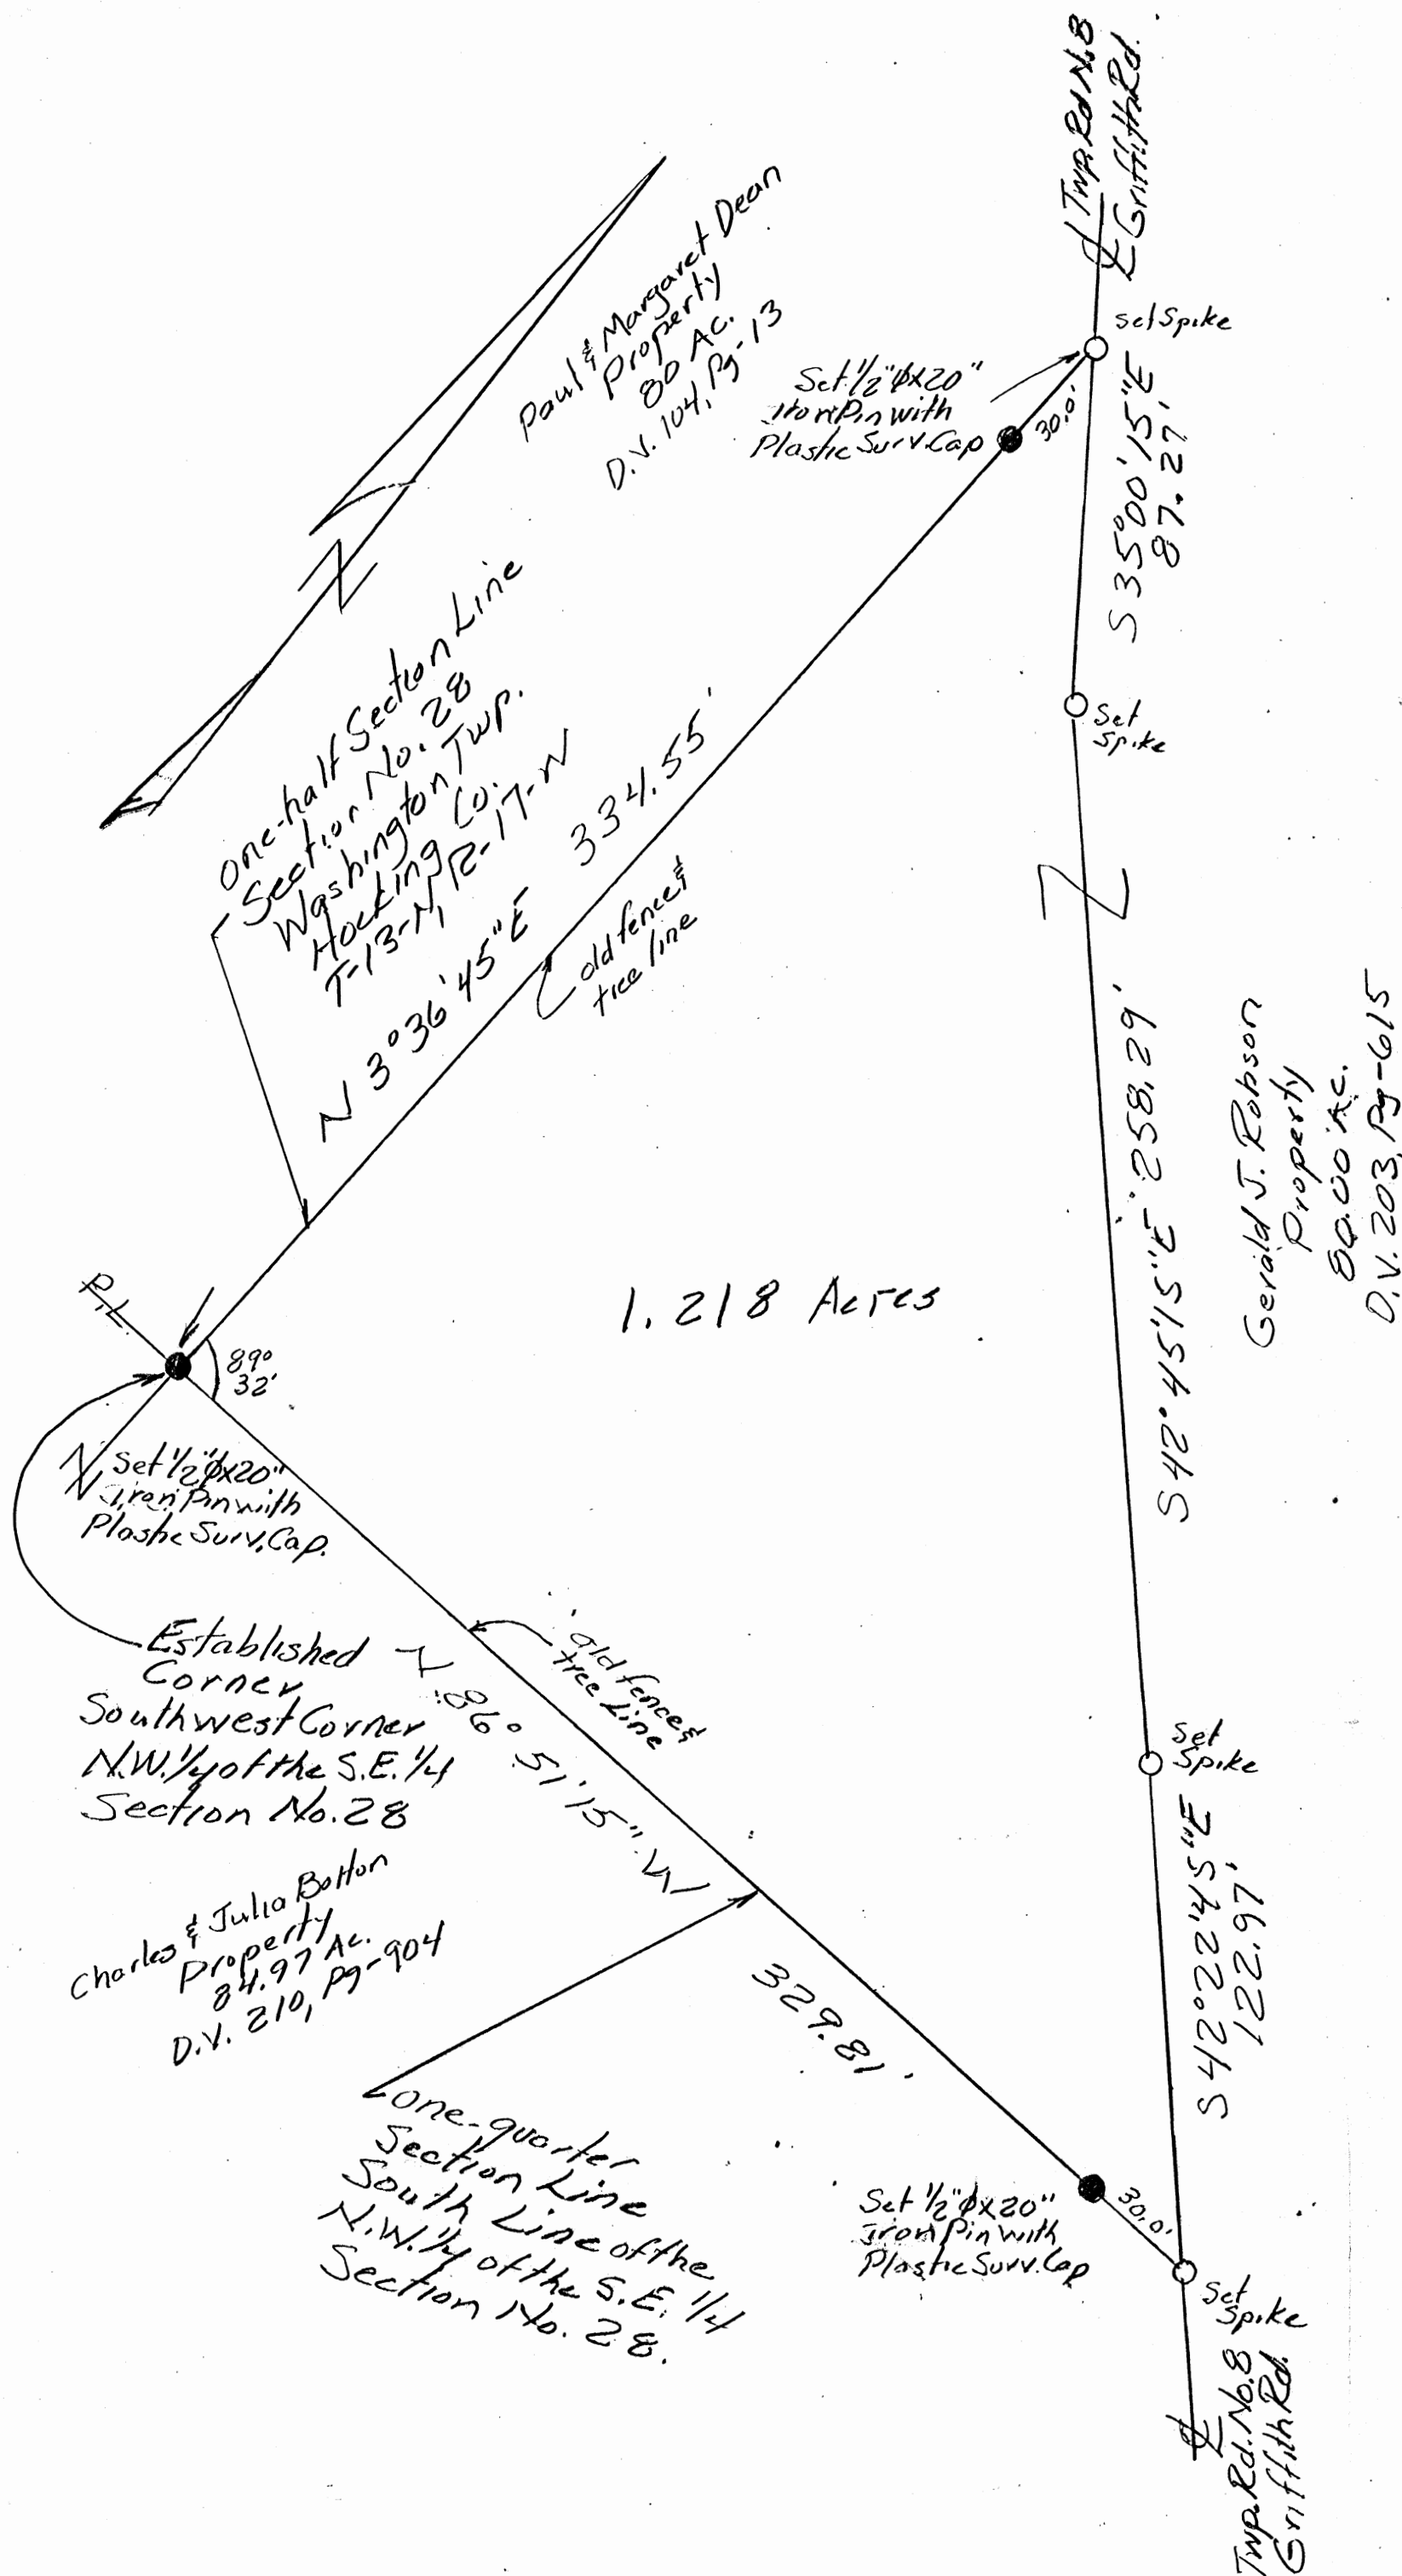 Twp. Rd No. 8
℄ Griffith Rd.
Set Spike
Paul & Margaret Dean
Property
80 Ac.
D.V. 104, Pg-13
Set 1/2"φx20"
Iron Pin with
Plastic Surv. Cap
30.0'
S 35°00'15"E
87.27'
N
One-half Section Line
Section No. 28
Washington Twp.
Hocking Co.
T-13-N, R-17-W
Set
Spike
N 3°36'45"E 334.55'
old fence &
tree line
S 42°45'15"E 258.29'
Gerald J. Robson
Property
80.00 Ac.
D.V. 203, Pg-615
1.218 Acres
P.L.
89°
32'
Set 1/2"φx20"
Iron Pin with
Plastic Surv. Cap.
Established
Corner,
Southwest Corner
N.W. 1/4 of the S.E. 1/4
Section No. 28
old fence &
tree line
N 86°51'15" W
329.81'
Set
Spike
S 42°22'45"E
122.97'
Charles & Julia Botton
Property
84.97 Ac.
D.V. 210, Pg-904
One-quarter
Section Line
South Line of the
N.W. 1/4 of the S.E. 1/4
Section No. 28.
Set 1/2"φx20"
Iron Pin with
Plastic Surv. Cap
30.0'
Set
Spike
℄
Twp. Rd. No. 8
Griffith Rd.